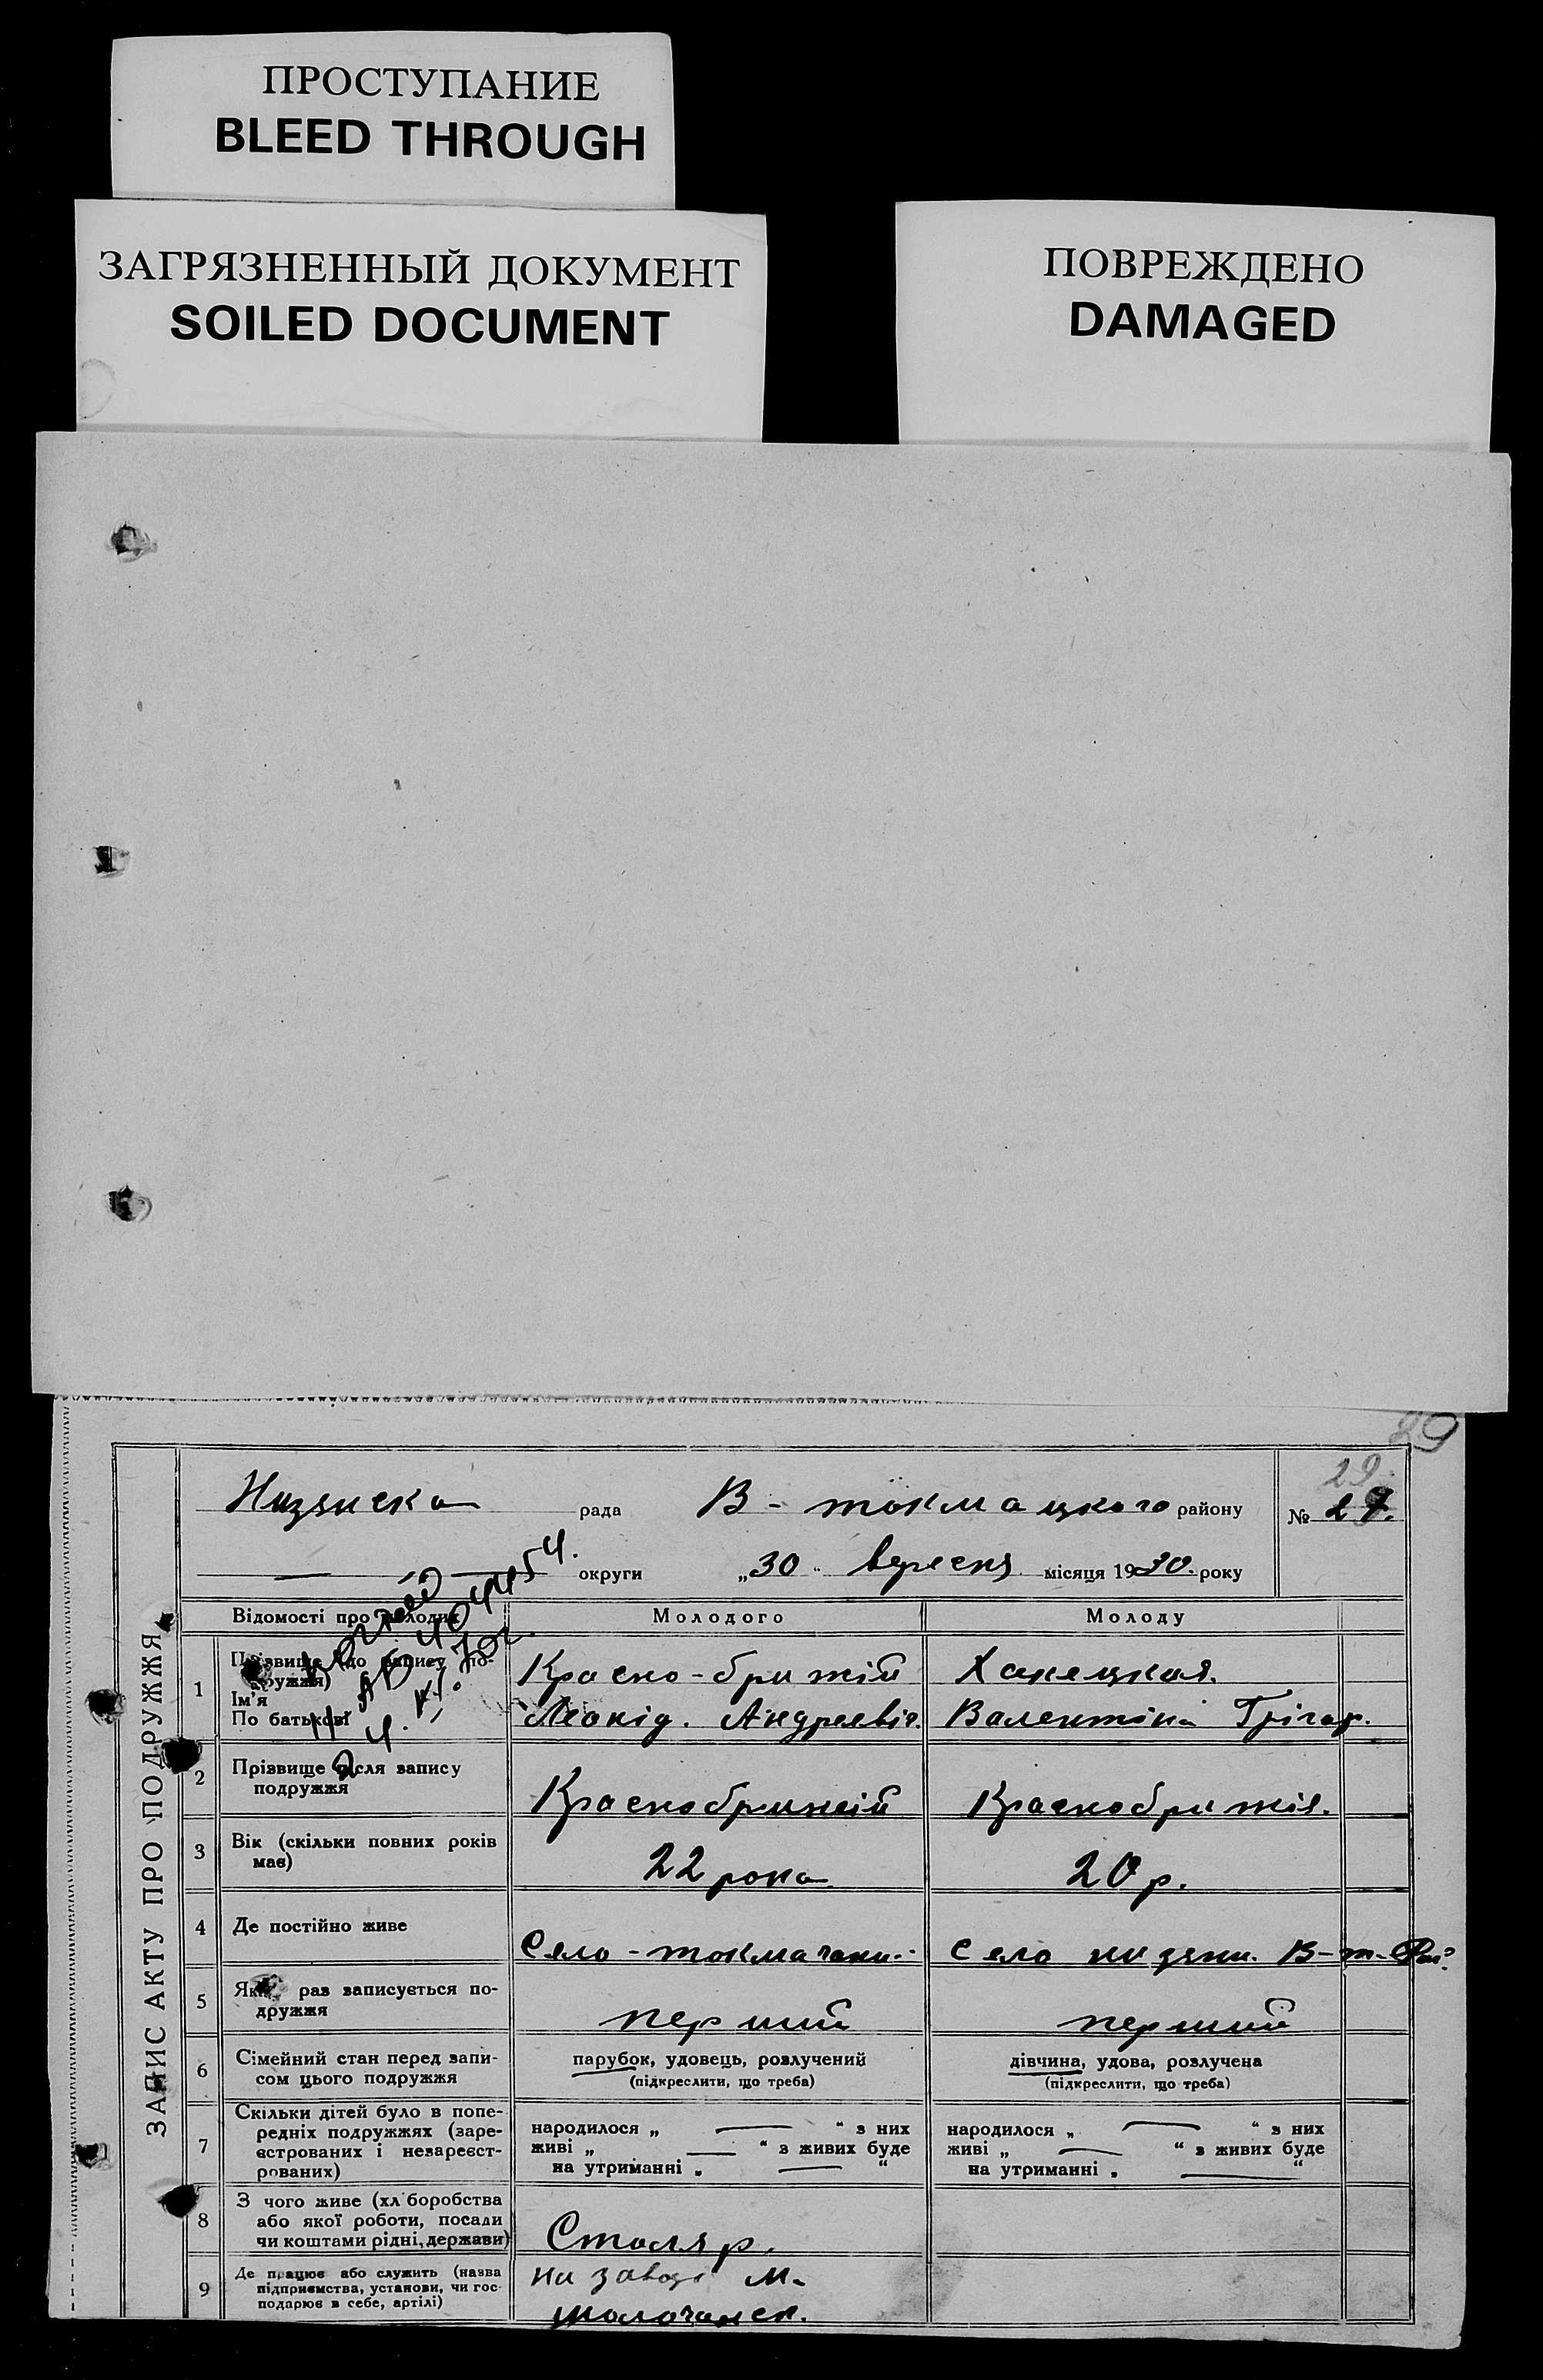 ПРОСТУПАНИЕ
BLEED THROUGH
ЗАГРЯЗНЕННЫЙ ДОКУМЕНТ
SOILED DOCUMENT
ПОВРЕЖДЕНО
DAMAGED
29
29.
рада В - токмацкого району № 27.
— округи „30" вересня місяця 1930. року
ЗАПИС АКТУ ПРО ПОДРУЖЖЯ
Відомості про молодих Молодого Молоду
1 Прізвище (до запису по- Красно-брижій Ханецкая.
дружжя)
Ім'я
По батькові Леонід. Андреевіч. Валентіна Грігор.
2 Прізвище після запису
подружжя Краснобрижій Краснобрижія.
3 Вік (скільки повних років
має) 22 рока 20 р.
4 Де постійно живе Село - Село В-т-
5 Який раз записується по-
дружжя перший перший
6 Сімейний стан перед запи- парубок, удовець, розлучений дівчина, удова, розлучена
сом цього подружжя (підкреслити, що треба) (підкреслити, що треба)
7 Скільки дітей було в попе-
редніх подружжях (заре- народилося „ — " з них народилося „ — " з них
єстрованих і незареєст- живі „ — " з живих буде живі „ — " з живих буде
рованих) на утриманні „ — " на утриманні „ — "
8 З чого живе (хліборобства
або якої роботи, посади
чи коштами рідні, держави) Столяр.
9 Де працює або служить (назва на заводі м.
підприємства, установи, чи гос-
подарює в себе, артілі) молочанск.